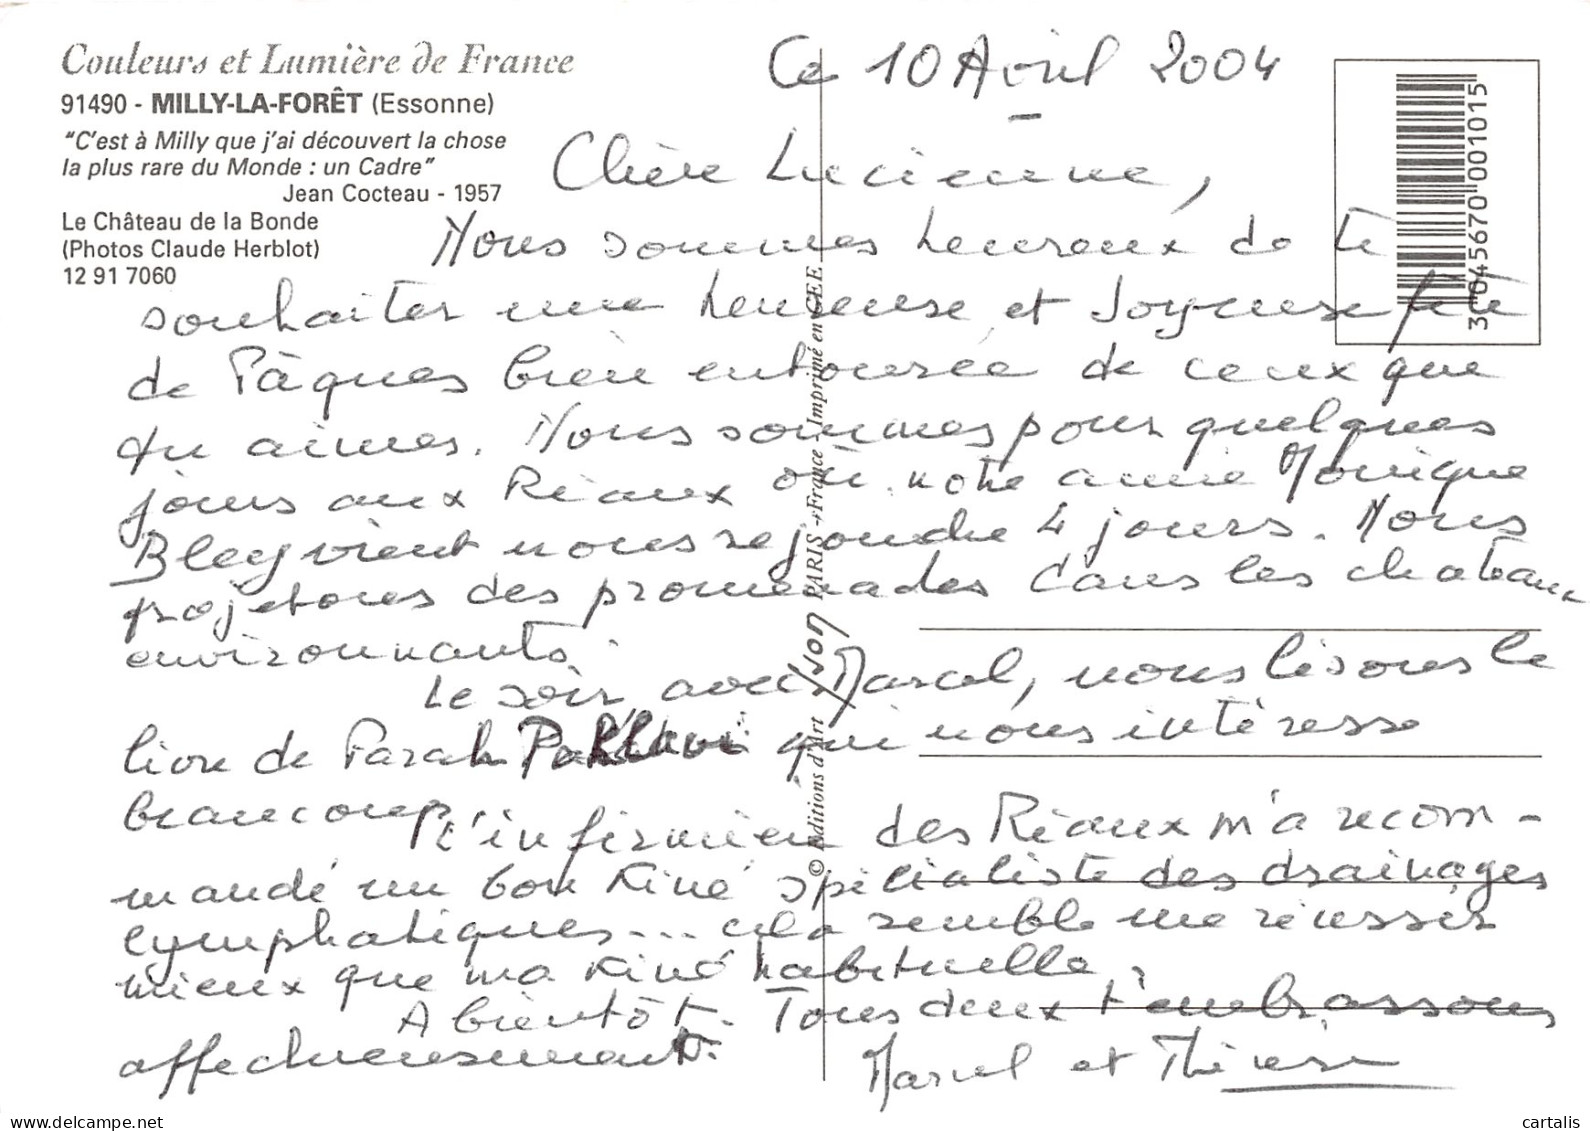 Couleurs et Lumière de France
91490 - MILLY-LA-FORÊT (Essonne)
"C'est à Milly que j'ai découvert la chose
la plus rare du Monde : un Cadre"
Jean Cocteau - 1957
Le Château de la Bonde
(Photos Claude Herblot)
12 91 7060
Ce 10 Avril 2004
Chère Lucienne,
Nous sommes heureux de te
souhaiter une heureuse et Joyeuse fête
de Pâques bien entourée de ceux que
tu aimes. Nous sommes pour quelques
jours aux Réaux où notre amie Monique
Bleg vient nous rejoindre 4 jours. Nous
projetons des promenades dans les chateaux
environnants.
Le soir avec Marcel, nous lisons le
livre de Farah Pahlavi qui nous intéresse
beaucoup
L'infirmière des Réaux m'a recom-
mandé un bon Kiné spécialiste des drainages
lymphatiques... cela semble me réussir
mieux que ma Kiné habituelle.
A bientôt. Tous deux t'embrassons
affectueusement.
Marcel et Thérèse
© Editions d'Art yvon PARIS - France - Imprimé en CEE
3 045670 001015
cartalis